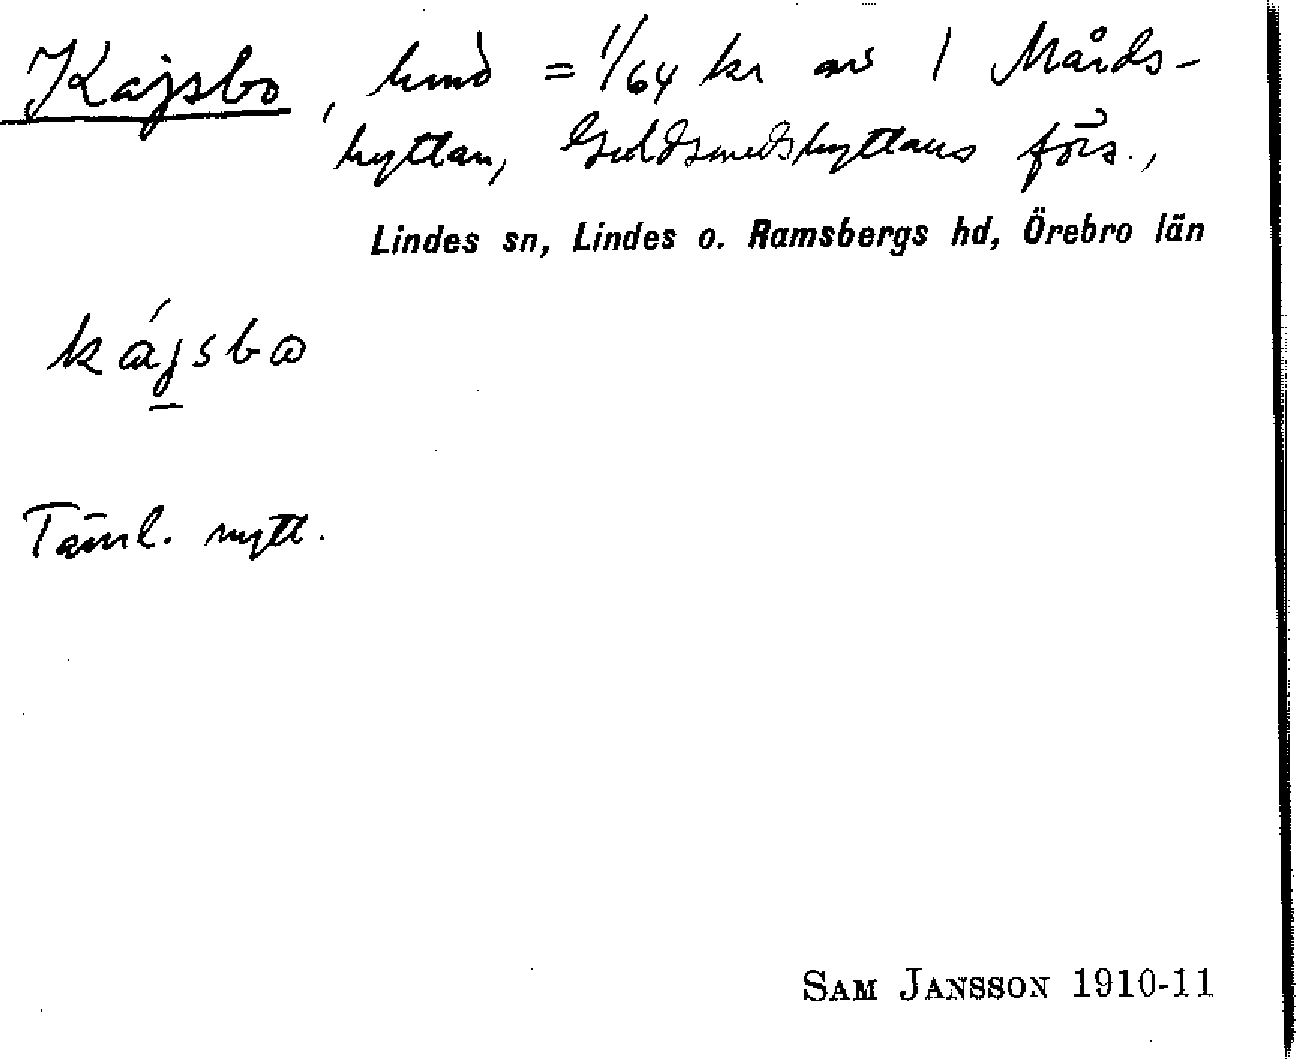 Kajsbo, hmd = 1/64 kr av 1 Mårds-
hyttan, Guldsmedshyttans förs.,
Lindes sn, Lindes o. Ramsbergs hd, Örebro län
kájsbꙍ
Täml. nytt.
SAM JANSSON 1910-11